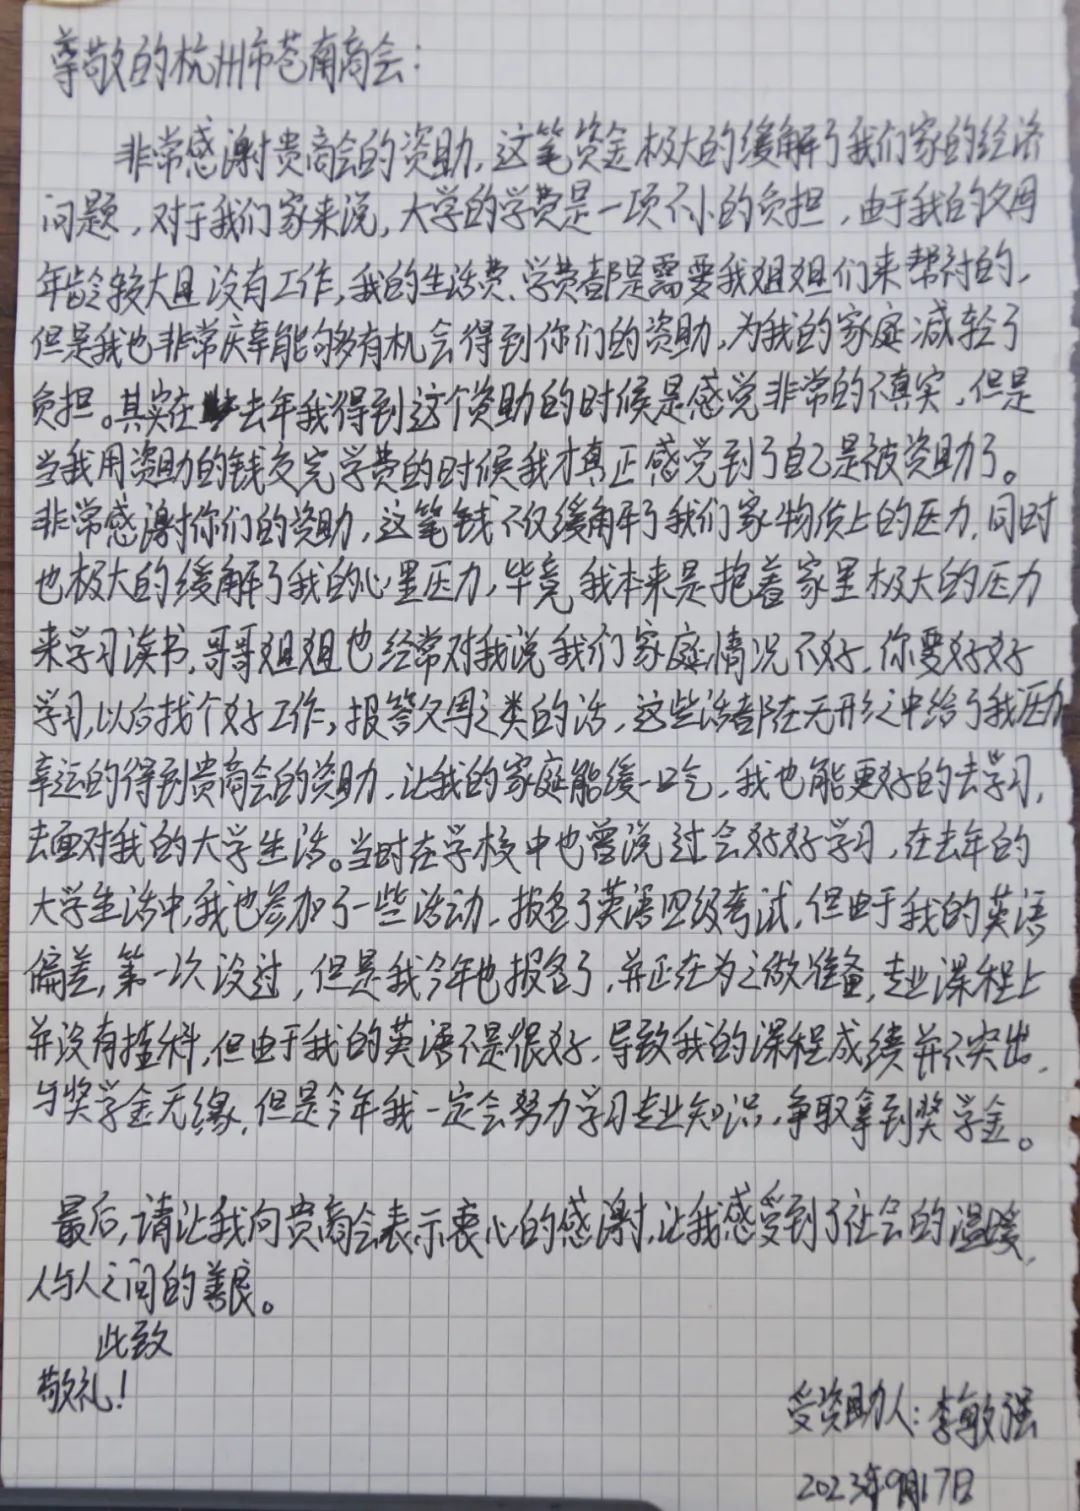 尊敬的杭州市苍南商会：
非常感谢贵商会的资助，这笔资金极大的缓解了我们家的经济
问题，对于我们家来说，大学的学费是一项不小的负担，由于我的父母
年龄较大且没有工作，我的生活费、学费都是需要我姐姐们来帮衬的，
但是我也非常庆幸能够有机会得到你们的资助，为我的家庭减轻了
负担。其实在去年我得到这个资助的时候是感觉非常的不真实，但是
当我用资助的钱交完学费的时候我才真正感觉到了自己是被资助了。
非常感谢你们的资助，这笔钱不仅缓解了我们家物质上的压力，同时
也极大的缓解了我的心里压力，毕竟我本来是抱着家里极大的压力
来学习读书，哥哥姐姐也经常对我说我们家庭情况不好，你要好好
学习，以后找个好工作，报答父母之类的话，这些话都在无形之中给了我压力
幸运的得到贵商会的资助，让我的家庭能缓一口气，我也能更好的去学习，
去面对我的大学生活。当时在学校中也曾说过会好好学习，在去年的
大学生活中，我也参加了一些活动，报名了英语四级考试，但由于我的英语
偏差，第一次没过，但是我今年也报名了，并正在为之做准备，专业课程上
并没有挂科，但由于我的英语不是很好，导致我的课程成绩并不突出，
与奖学金无缘，但是今年我一定会努力学习专业知识，争取拿到奖学金。
最后，请让我向贵商会表示衷心的感谢，让我感受到了社会的温暖，
人与人之间的善良。
此致
敬礼！
受资助人：李敏强
2023年9月17日